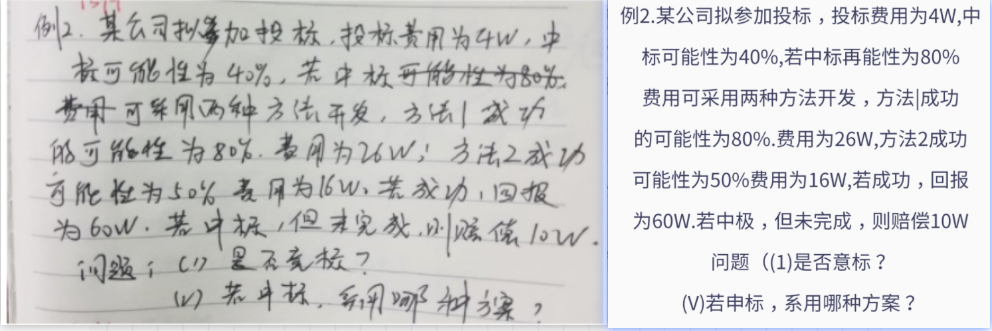 例2.某公司拟参加投标,投标费用为4W,中
标可能性为40%,若中标可能性为80%.
费用可采用两种方法开发,方法1成功
的可能性为80%.费用为26W;方法2成功
可能性为50%费用为16W.若成功,回报
为60W.若中标,但未完成,则赔偿10W.
问题:(1)是否竞标?
(2)若中标,采用哪种方案?
例2.某公司拟参加投标,投标费用为4W,中
标可能性为40%,若中标再能性为80%
费用可采用两种方法开发,方法|成功
的可能性为80%.费用为26W,方法2成功
可能性为50%费用为16W,若成功,回报
为60W.若中极,但未完成,则赔偿10W
问题((1)是否意标?
(V)若申标,系用哪种方案?